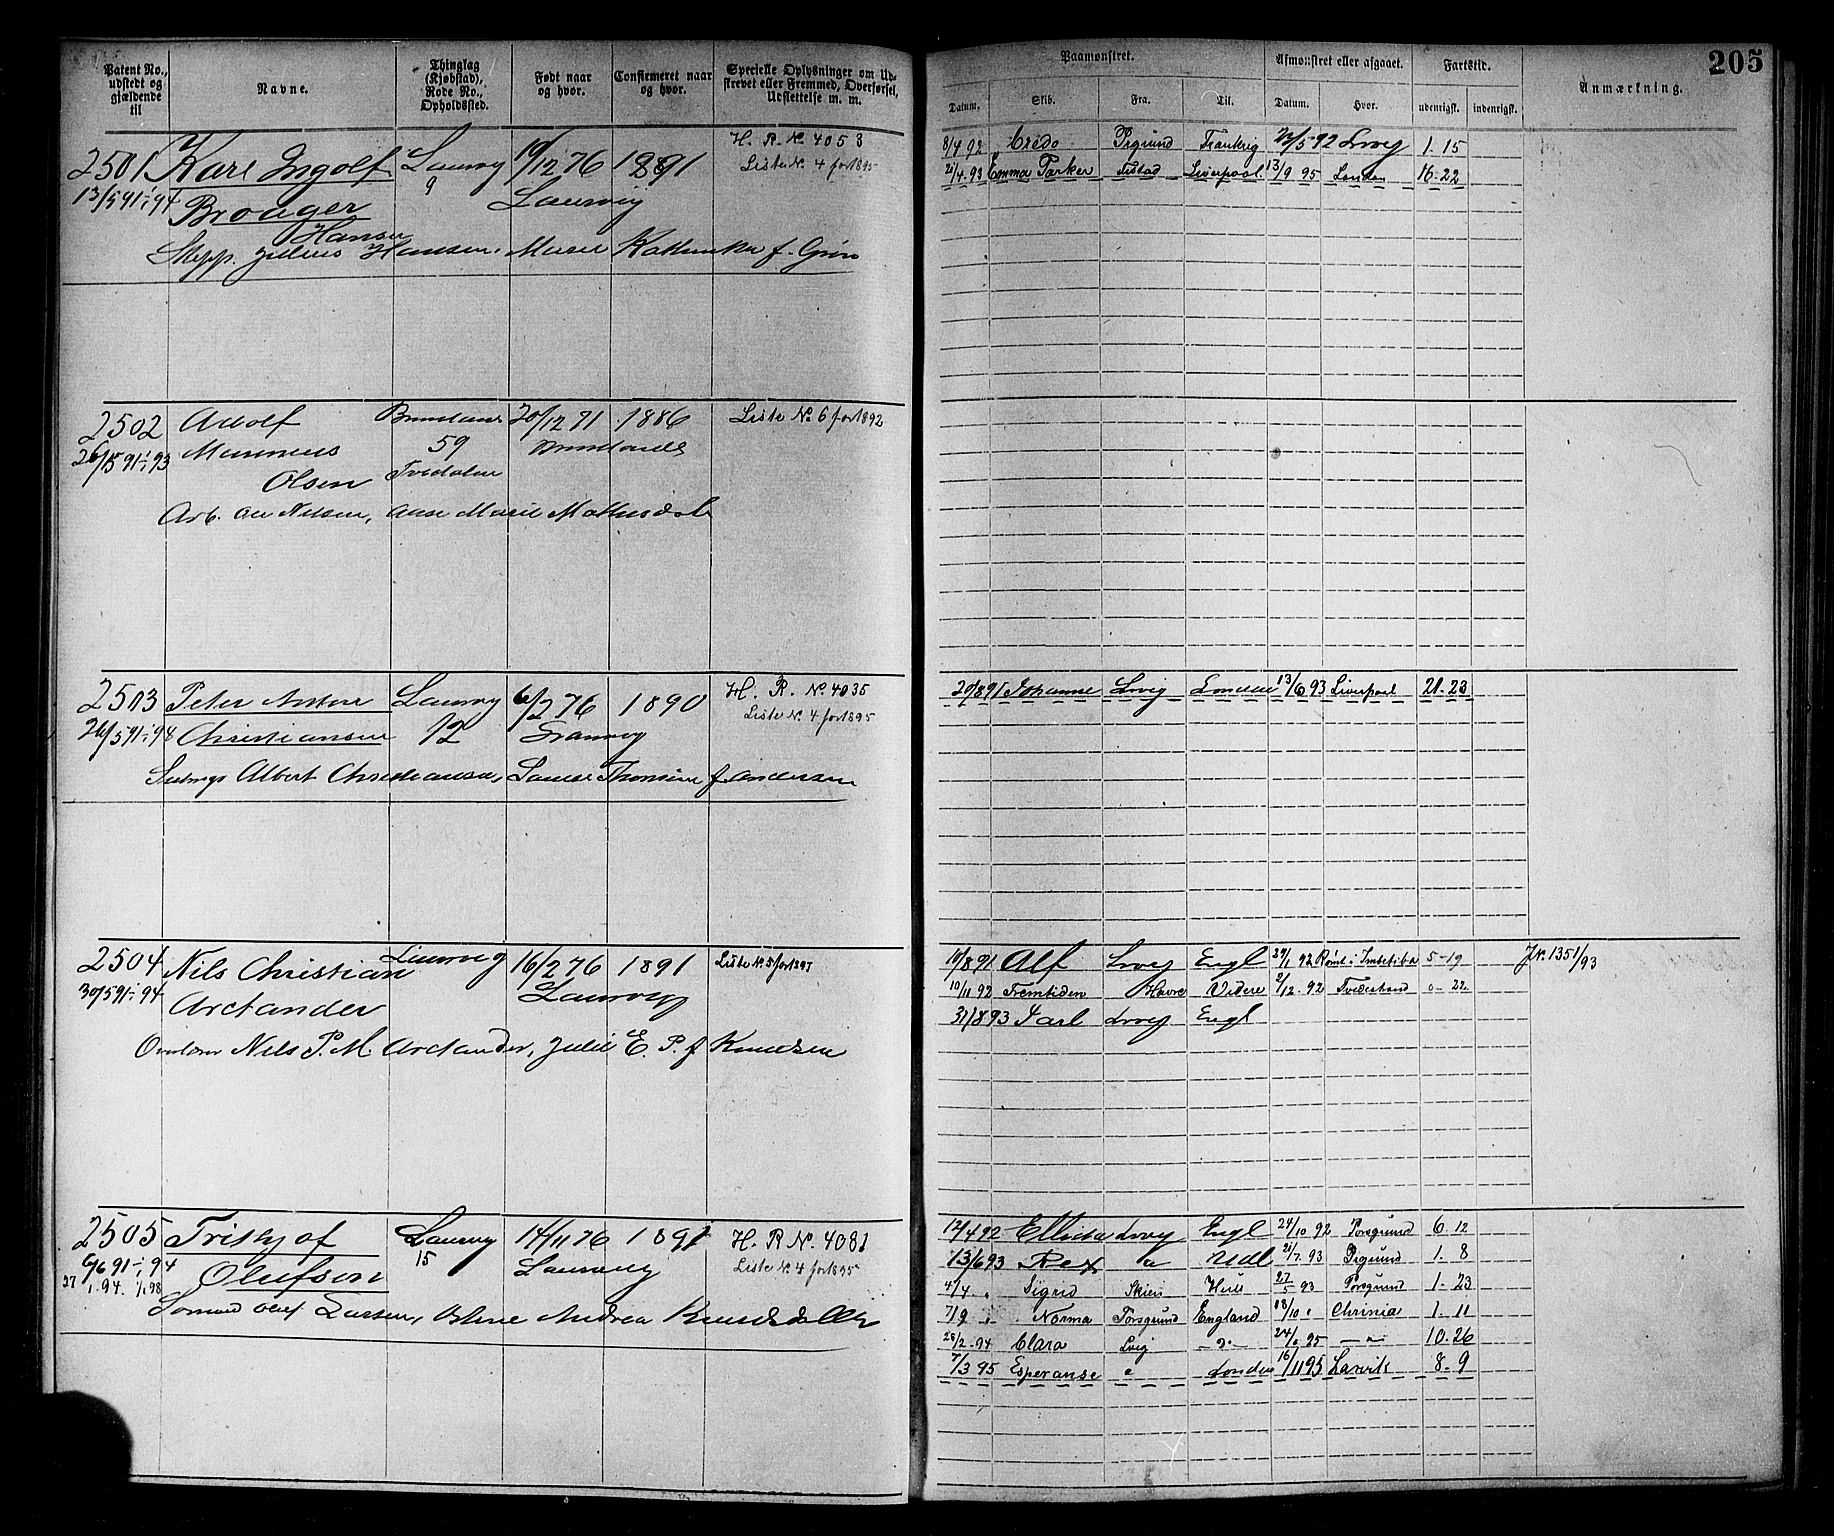 205
Patent No., udstedt og gjældende til
Navne.
Thinglag (Kjøbstad), Rode No., Opholdssted.
Født naar og hvor.
Confirmeret naar og hvor.
Specielle Oplysninger om Udstrevet eller Fremmed, Overførsel, Udslettelse m. m.
Paamønstret.
Afmønstret eller afgaaet.
Fartstid.
Anmærkning.
Datum. Skib. Fra. Til. Datum. Hvor. udenrigsk. indenrigsk.
2501 Karl Ingolf Laurvig 19/12 76 1891 H. R. No. 4053
9 Liste No. 4 for 1895
13/5 91 1/1 94 Broager Laurvig
Hansen
Skipp. Julius Hansen, Marie Kathinka f.
8/4 92 Credo Prgrund Frankrig 92 Lvvig 1-15
21/4 93 Emma Parker Fistad Liverpool 13/9 95 London 16-22
2502 Adolf 20/12 71 1886 Liste No. 6 for 1892
26/5 91 1/1 93 59
Olsen Tvedalen
Arb. Nilsen, Marie
2503 Peter Laurvig 6/2 76 1890 H. R. No. 4035
Liste No. 4 for 1895
26/5 91 1/1 94 Christiansen 12
Albert Christiansen, Thomine f. Andersen
20/8 91 Johanne Lvvig London 13/6 93 Liverpool 21-23
2504 Nils Christian Laurvig 16/2 76 1891 Liste No. 5 for 1897
30/5 91 1/1 94 Arctander Laurvig
Nils P. M. Arctander, Julie E. P. f. Knudsen
91 Alf Lvvig Engl 92 5-19 J.No. 1351/93
10/11 92 Fremtiden Havre Videre 2/12 92 Tvedestrand 0-22
31/8 93 Jarl Lvvig Engl
2505 Fritjof Laurvig 14/11 76 1891 H. R. No. 4081
15 Liste No. 4 for 1895
6/6 91 1/1 94 Olufson Laurvig
27/1 94 1/1 98
Larsen, Andrea Knudsdatter
12/4 92 Lvvig Engl 24/10 92 Porsgrund 6-12
13/6 93 Rex Udl 21/7 93 1-8
4/4 Sigrid Skien Hull 27/5 93 Porsgrund 1-23
Norma Porsgrund England 18/10 Chrinia 1-11
28/2 94 Clara Lvig 95 10-26
7/3 95 Esperanse London 16/11 95 Larvik 8-9